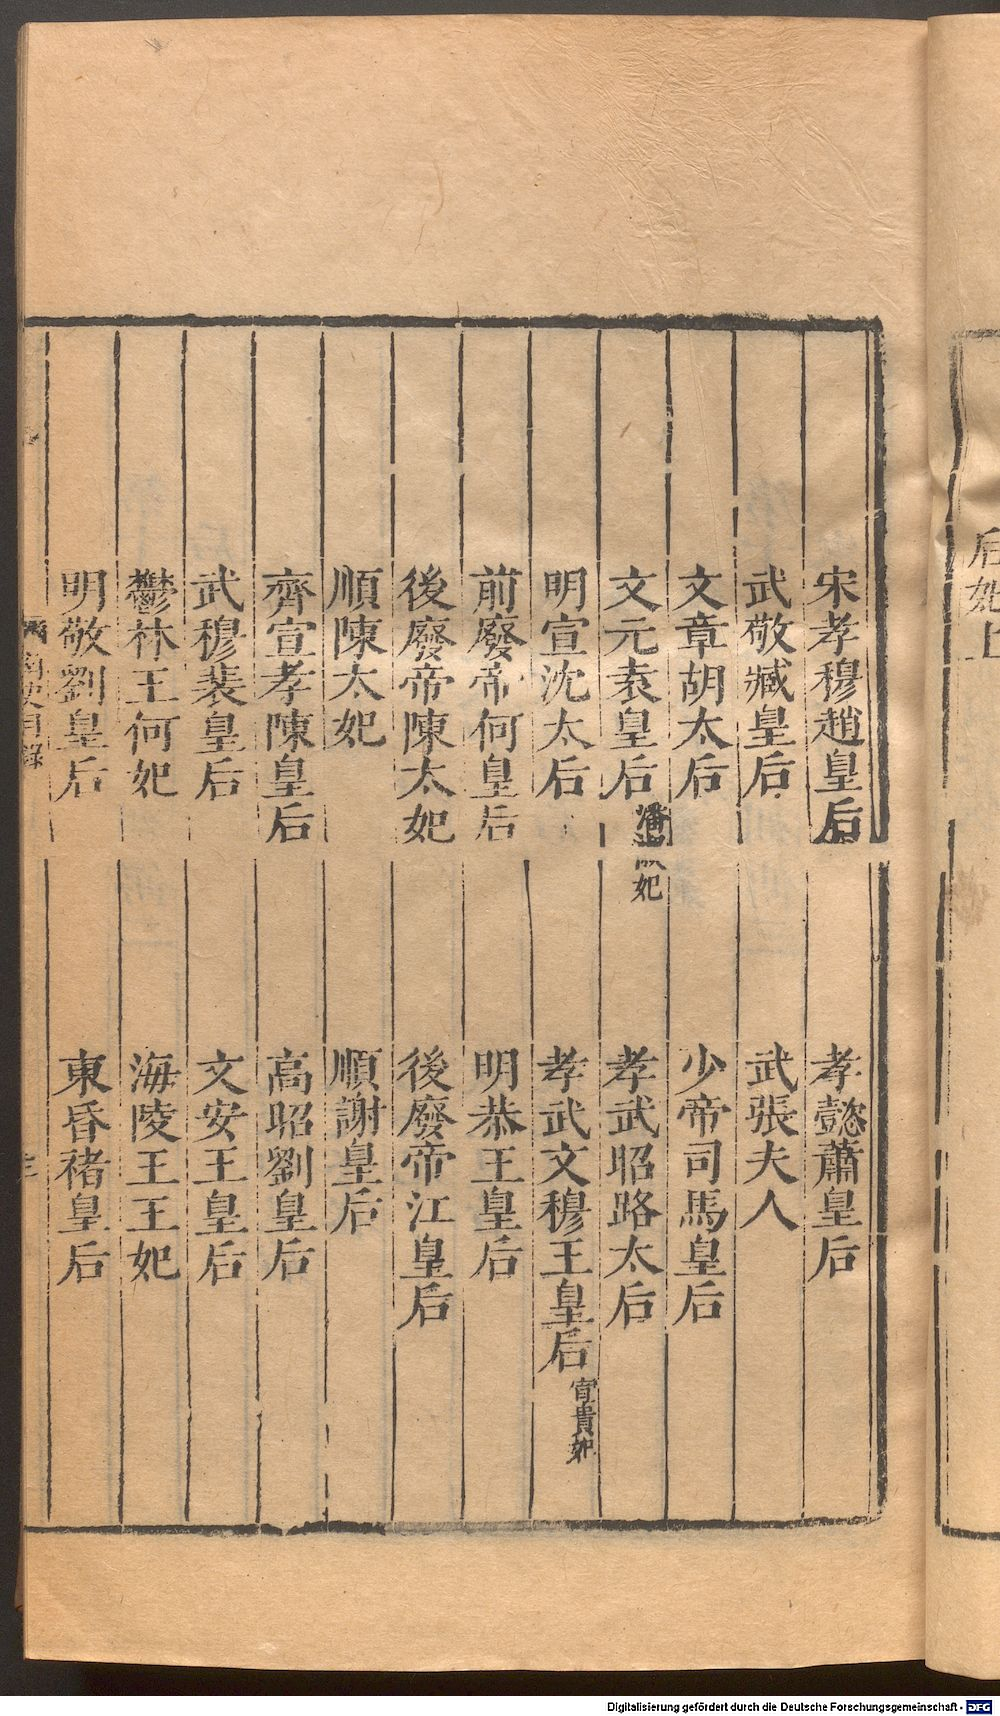 后妃上
宋孝穆趙皇后　孝懿蕭皇后
武敬臧皇后　武張夫人
文章胡太后　少帝司馬皇后
文元袁皇后潘淑妃　孝武昭路太后
明宣沈太后　孝武文穆王皇后宣貴妃
前廢帝何皇后　明恭王皇后
後廢帝陳太妃　後廢帝江皇后
順陳太妃　順謝皇后
齊宣孝陳皇后　高昭劉皇后
武穆裴皇后　文安王皇后
鬱林王何妃　海陵王王妃
明敬劉皇后　東昏褚皇后
南史目錄
Digitalisierung gefördert durch die Deutsche Forschungsgemeinschaft - DFG